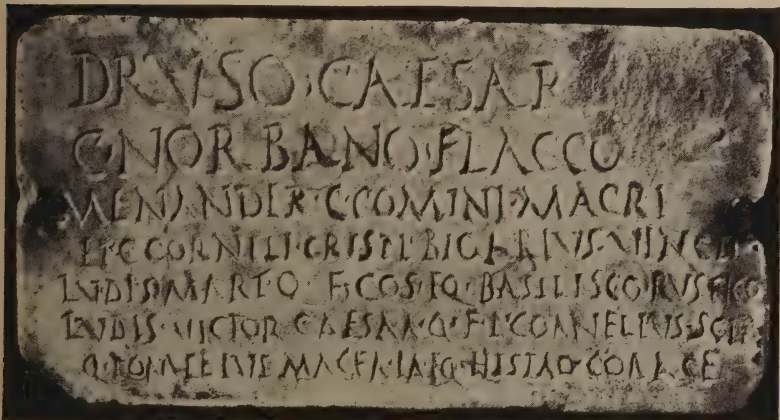 DRVSO · CAESAR
C NORBANO · FLACCO
MENANDER · C · COMINI · MACRI
ET · C CORNELI · CRISPI · BIGARIVS · VINCE
LVDIS · MART · Q · F · COS · EQ · BASILISCO RVSTICO
LVDIS · VICTOR CAESAR · Q · F · CORNELIVS · SCI
Q · POMPEIVS MACER EQ · HISTRO · CORACE